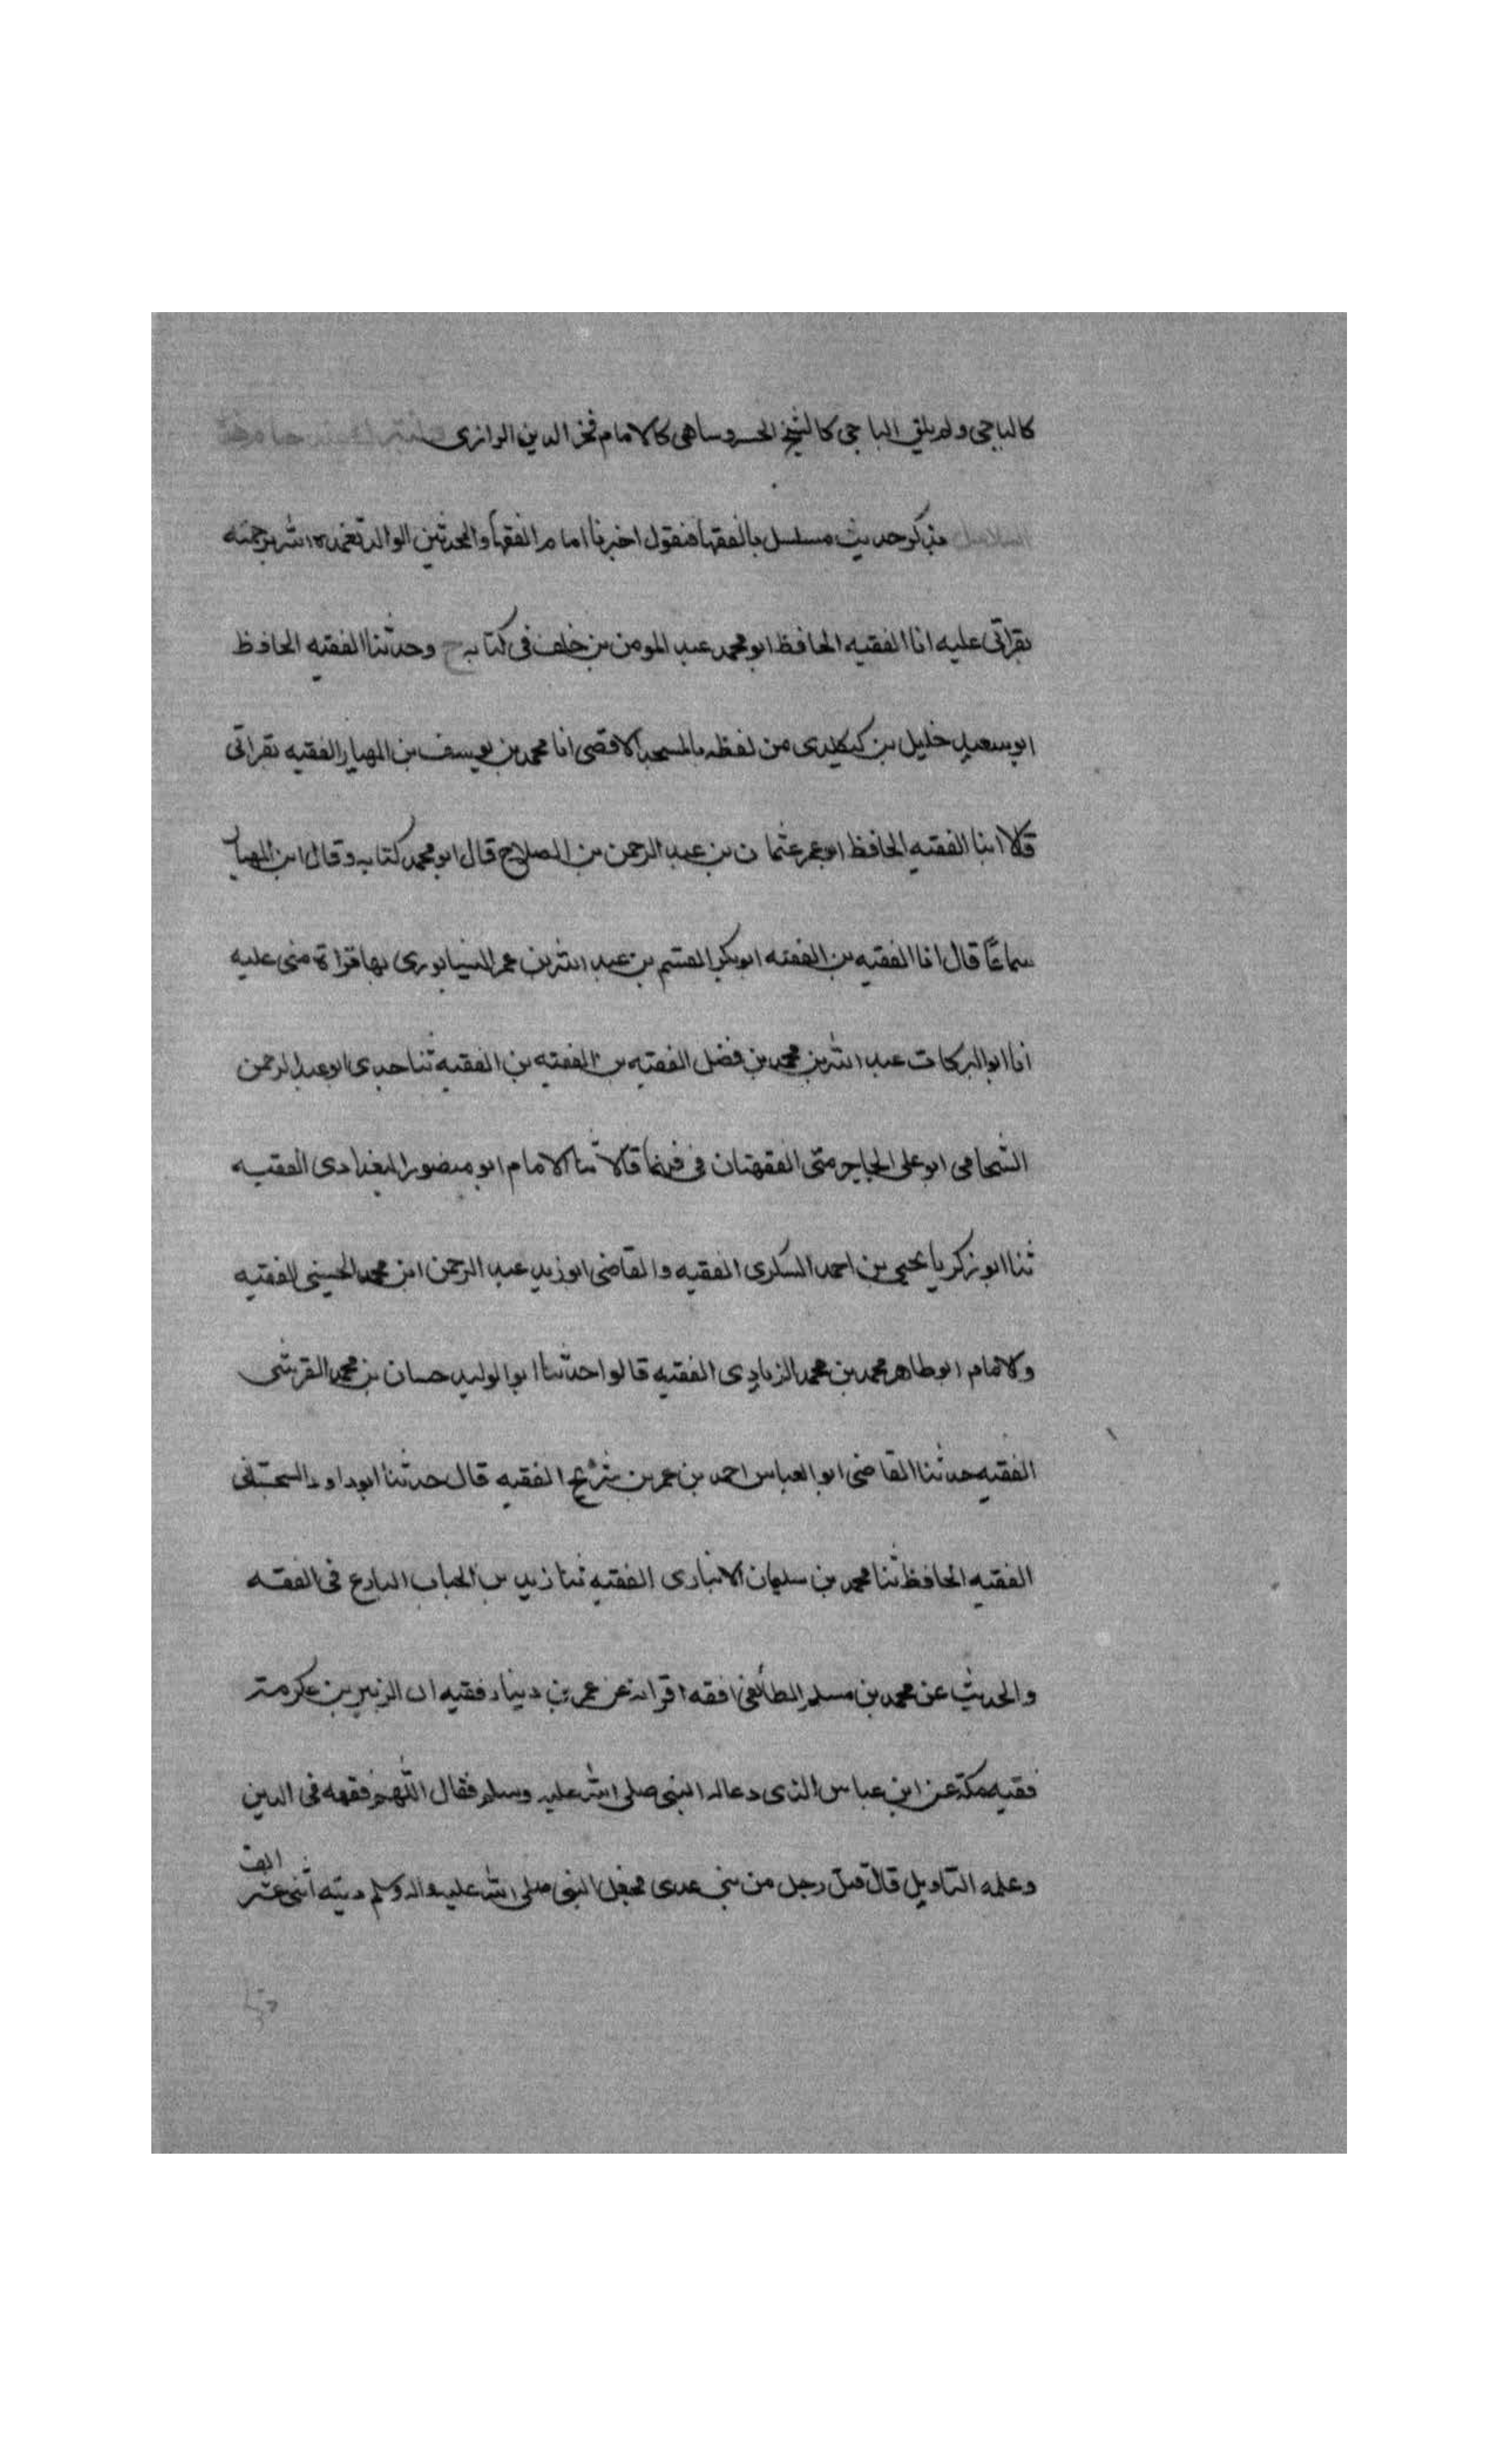 كالباجى ولم يلق الباجى كالشيخ الخسروساهى كالامام فخر الدين الرازى
بذكر حديث مسلسل بالفقها فنقول اخبرنا امام الفقها والمحدثين الوالد تغمده الله برحمته
بقراتى عليه انا الفقيه الحافظ ابو محمد عبد المومن بن خلف فى كتابه ح وحدثنا الفقيه الحافظ
ابو سعيد خليل بن كيكلدى من لفظه بالمسجد الاقصى انا محمد بن يوسف بن المهيار الفقيه بقراتى
قالا ابنا الفقيه الحافظ ابو عمر عثمان بن عبد الرحمن بن الصلاح قال ابو محمد كتابه وقال ابن المهيار
سماعًا قال انا الفقيه بن الفقيه ابو بكر القسم بن عبد الله بن عمر النسابورى بها قراة منى عليه
انا ابو البركات عبد الله بن محمد بن فضل الفقيه بن الفقيه بن الفقيه ثنا جدى ابو عبد الرحمن
الشحامى ابو على الجاجرمتى الفقهتان قالا ثنا الامام ابو منصور البغدادى الفقيه
ثنا ابو زكريا يحيى بن احمد السكرى الفقيه والقاضى ابو زيد عبد الرحمن ابن محمد الحسينى الفقيه
ولامام ابو طاهر محمد بن محمد الزيادى الفقيه قالوا حدثنا ابو الوليد حسان بن محمد القرشى
الفقيه حدثنا القاضى ابو العباس احمد بن عمر بن شريح الفقيه قال حدثنا ابو داود السجستانى
الفقيه الحافظ ثنا محمد بن سليمان الانبارى الفقيه ثنا زيد بن الحباب البارع فى الفقه
والحديث عن محمد بن مسلم الطائفى افقه اقرانه عن عمر بن دينار فقيه ال الزبير بن عكرمة
فقيه مكة عن ابن عباس الذى دعاله النبى صلى الله عليه وسلم فقال اللهم فقهه فى الدين
وعلمه التاويل قال قتل رجل من بنى عدى فجعل النبى صلى الله عليه واله وسلم ديته اثنى عشر
الف